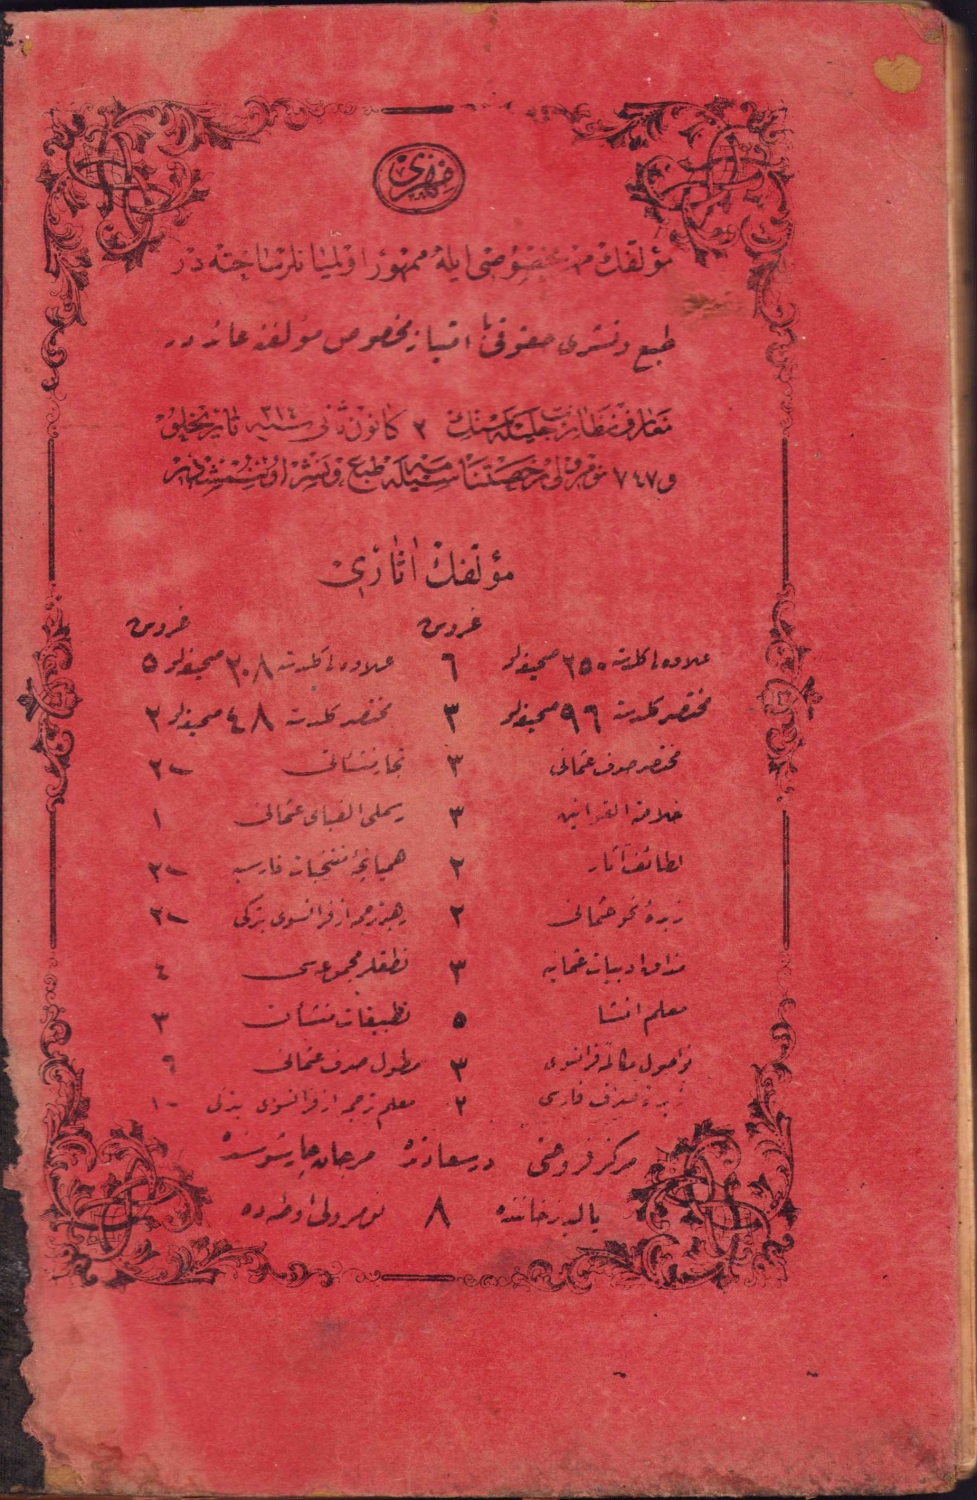 فخری
مؤلفك مهر مخصوصی ایله ممهور اولمیانلر ساخته در
طبع و نشری حقوقی با امتیاز مخصوص مؤلفنه عائددر
معارف نظارت جلیله سنك ٢ كانون ثانی سنه ٣١٤ تاریخلو
و ٧٤٧ نومرولی رخصتنامه سیله طبع و نشر اولنمشدر
مؤلفك اثاری
غروش غروش
علاوه لی كلدسته ٢٥٠ صحیفه لر ٦ علاوه لی كلدسته ٢٠٨ صحیفه لر ٥
مختصر كلدسته ٩٦ صحیفه لر ٣ مختصر كلدسته ٤٨ صحیفه لر ٢
مختصر صرف عثمانی ٣ تجار منشئاتی ٢٠
خلاصة القوانین ٣ رسملی الفبای عثمانی ١
لطائف آثار ٢ همیانچۀ منتخبات فارسیه ٢٠
زبدۀ نحو عثمانی ٢ رهبر ترجمه از فرانسوی بتركی ٢٠
مذاق ادبیات عثمانیه ٣ نطقلر مجموعه سی ٤
معلم انشا ٥ تطبیقات منشأت ٣
نو اصول مكالمۀ فرانسوی ٣ مطول صرف عثمانی ٩
زبدۀ صرف فارسی ٢ معلم ترجمه از فرانسوی بتركی ١٠
مركز فروختی درسعادتده مرجان چارشوسنده
بالیدز خاننده ٨ نومرولی اوطه ده